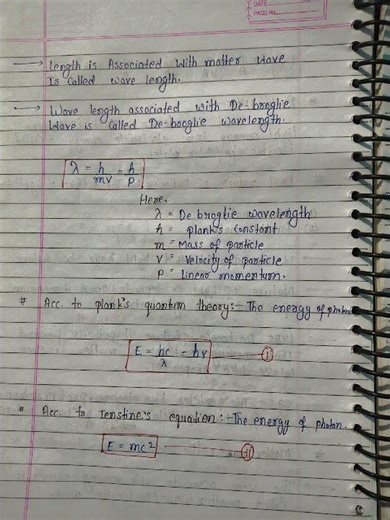 DATE
PAGE No.
→ Length is Associated With matter Wave
Is Called wave length.
→ Wave length associated with De-broglie
Wave is Called De-broglie wavelength.
λ = h/mv = h/p
Here,
λ = De broglie wavelength
h = plank's Constant
m = Mass of particle
v = Velocity of particle
P = Linear momentum.
# Acc. to plank's quantum theory:- The energy of photon
E = hc/λ = hν — ①
* Acc. to Ienstine's equation:- The energy of photon.
E = mc² — ⑪